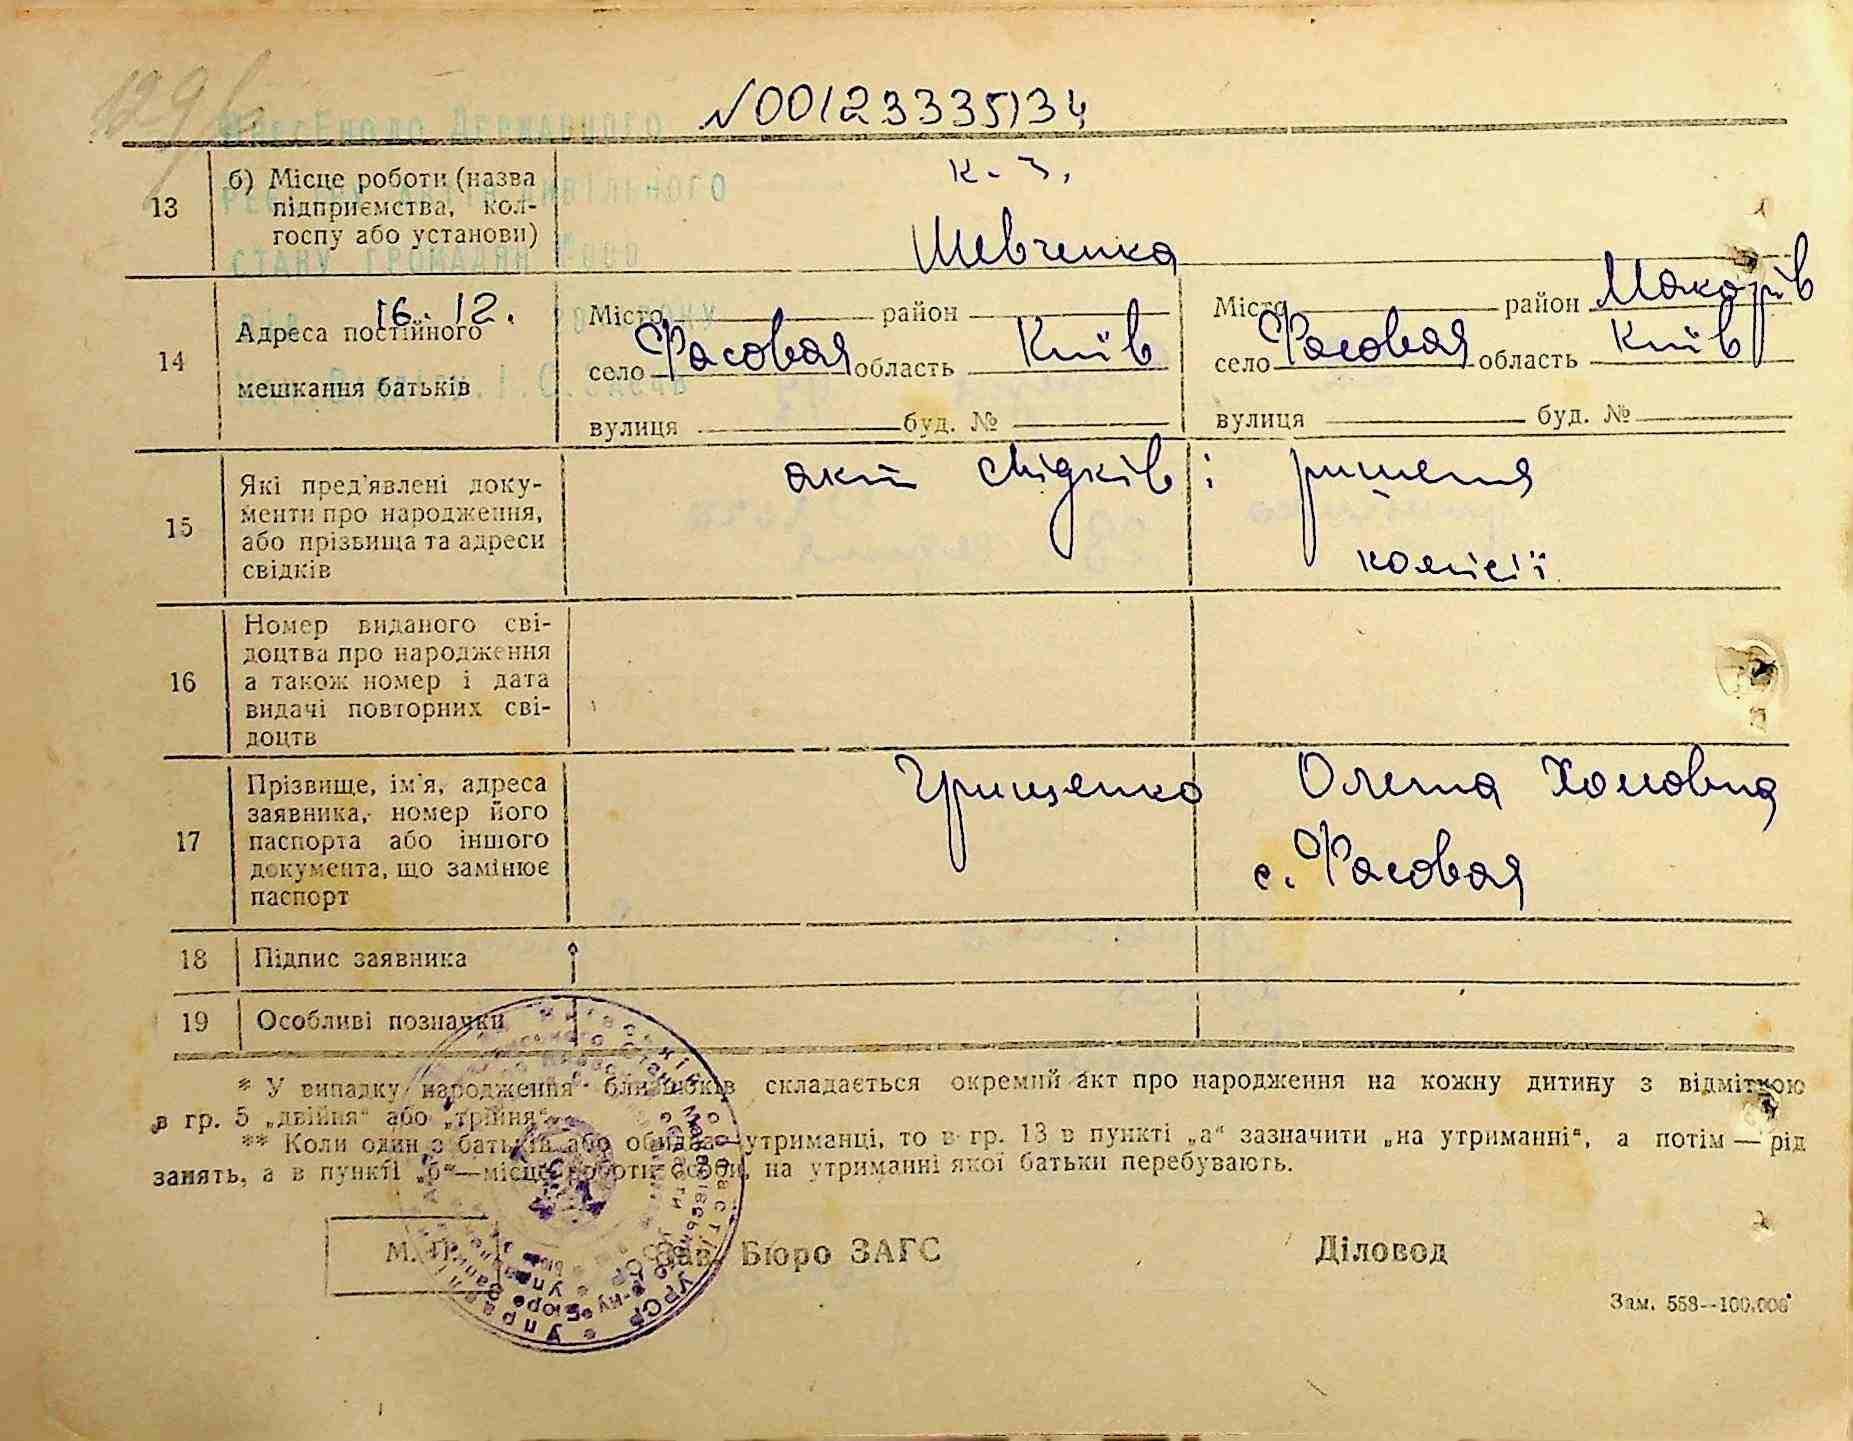 №00123335134
13 б) Місце роботи (назва підприємства, кол-госпу або установи) к. з.
Шевченка
14 Адреса постійного мешкання батьків
16. 12.
Місто район Місто район Макарів
село Фасовая область Київ село Фасовая область Київ
вулиця буд. № вулиця буд. №
15 Які пред'явлені доку-
менти про народження,
або прізвища та адреси
свідків
акт свідків і ришения
комісії
16 Номер виданого сві-
доцтва про народження
а також номер і дата
видачі повторних сві-
доцтв
17 Прізвище, ім'я, адреса
заявника, номер його
паспорта або іншого
документа, що замінює
паспорт
Грищенко Олена Хомовна
с. Фасовая
18 Підпис заявника
19 Особливі позначки
* У випадку народження близнюків складається окремий акт про народження на кожну дитину з відміткою
в гр. 5 „двійня“ або „трійня“.
** Коли один з батьків або обидва—утриманці, то в гр. 13 в пункті „а“ зазначити „на утриманні“, а потім — рід
занять, а в пункті „б“—місце роботи особи, на утриманні якої батьки перебувають.
М. П. Зав. Бюро ЗАГС Діловод
Зам. 553—100.000